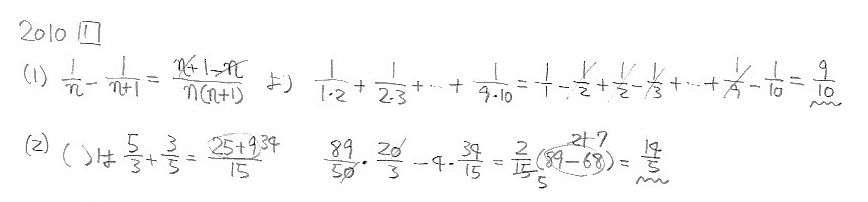 2010 1
(1) 1/n - 1/(n+1) = (n+1-n)/(n(n+1)) より 1/(1・2) + 1/(2・3) + … + 1/(9・10) = 1/1 - 1/2 + 1/2 - 1/3 + … + 1/9 - 1/10 = 9/10
(2) ( )は 5/3 + 3/5 = (25+9)/15 34 89/50・20/3 - 4・34/15 = 2/15 (89-68) = 14/5
21 7
5